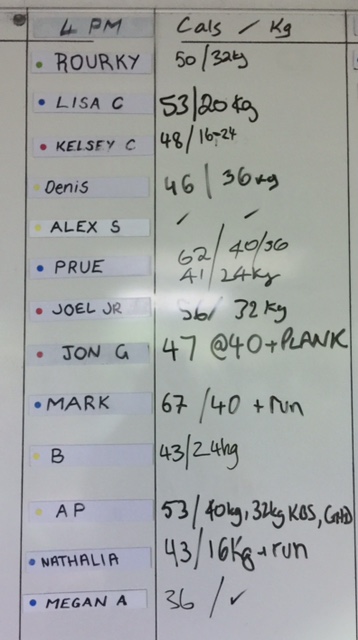 4 PM Cals / Kg
ROURKY 50/32kg
LISA C 53/20kg
KELSEY C 48/16-24
Denis 46 / 36kg
ALEX S ✓ / ✓
62/40/36
PRUE 41/24kg
JOEL JR 56/ 32kg
JON G 47 @40+PLANK
MARK 67/40 + run
B 43/24kg
AP 53/40kg, 32kg KBS, GHD
NATHALIA 43/16Kg + run
MEGAN A 36 / ✓